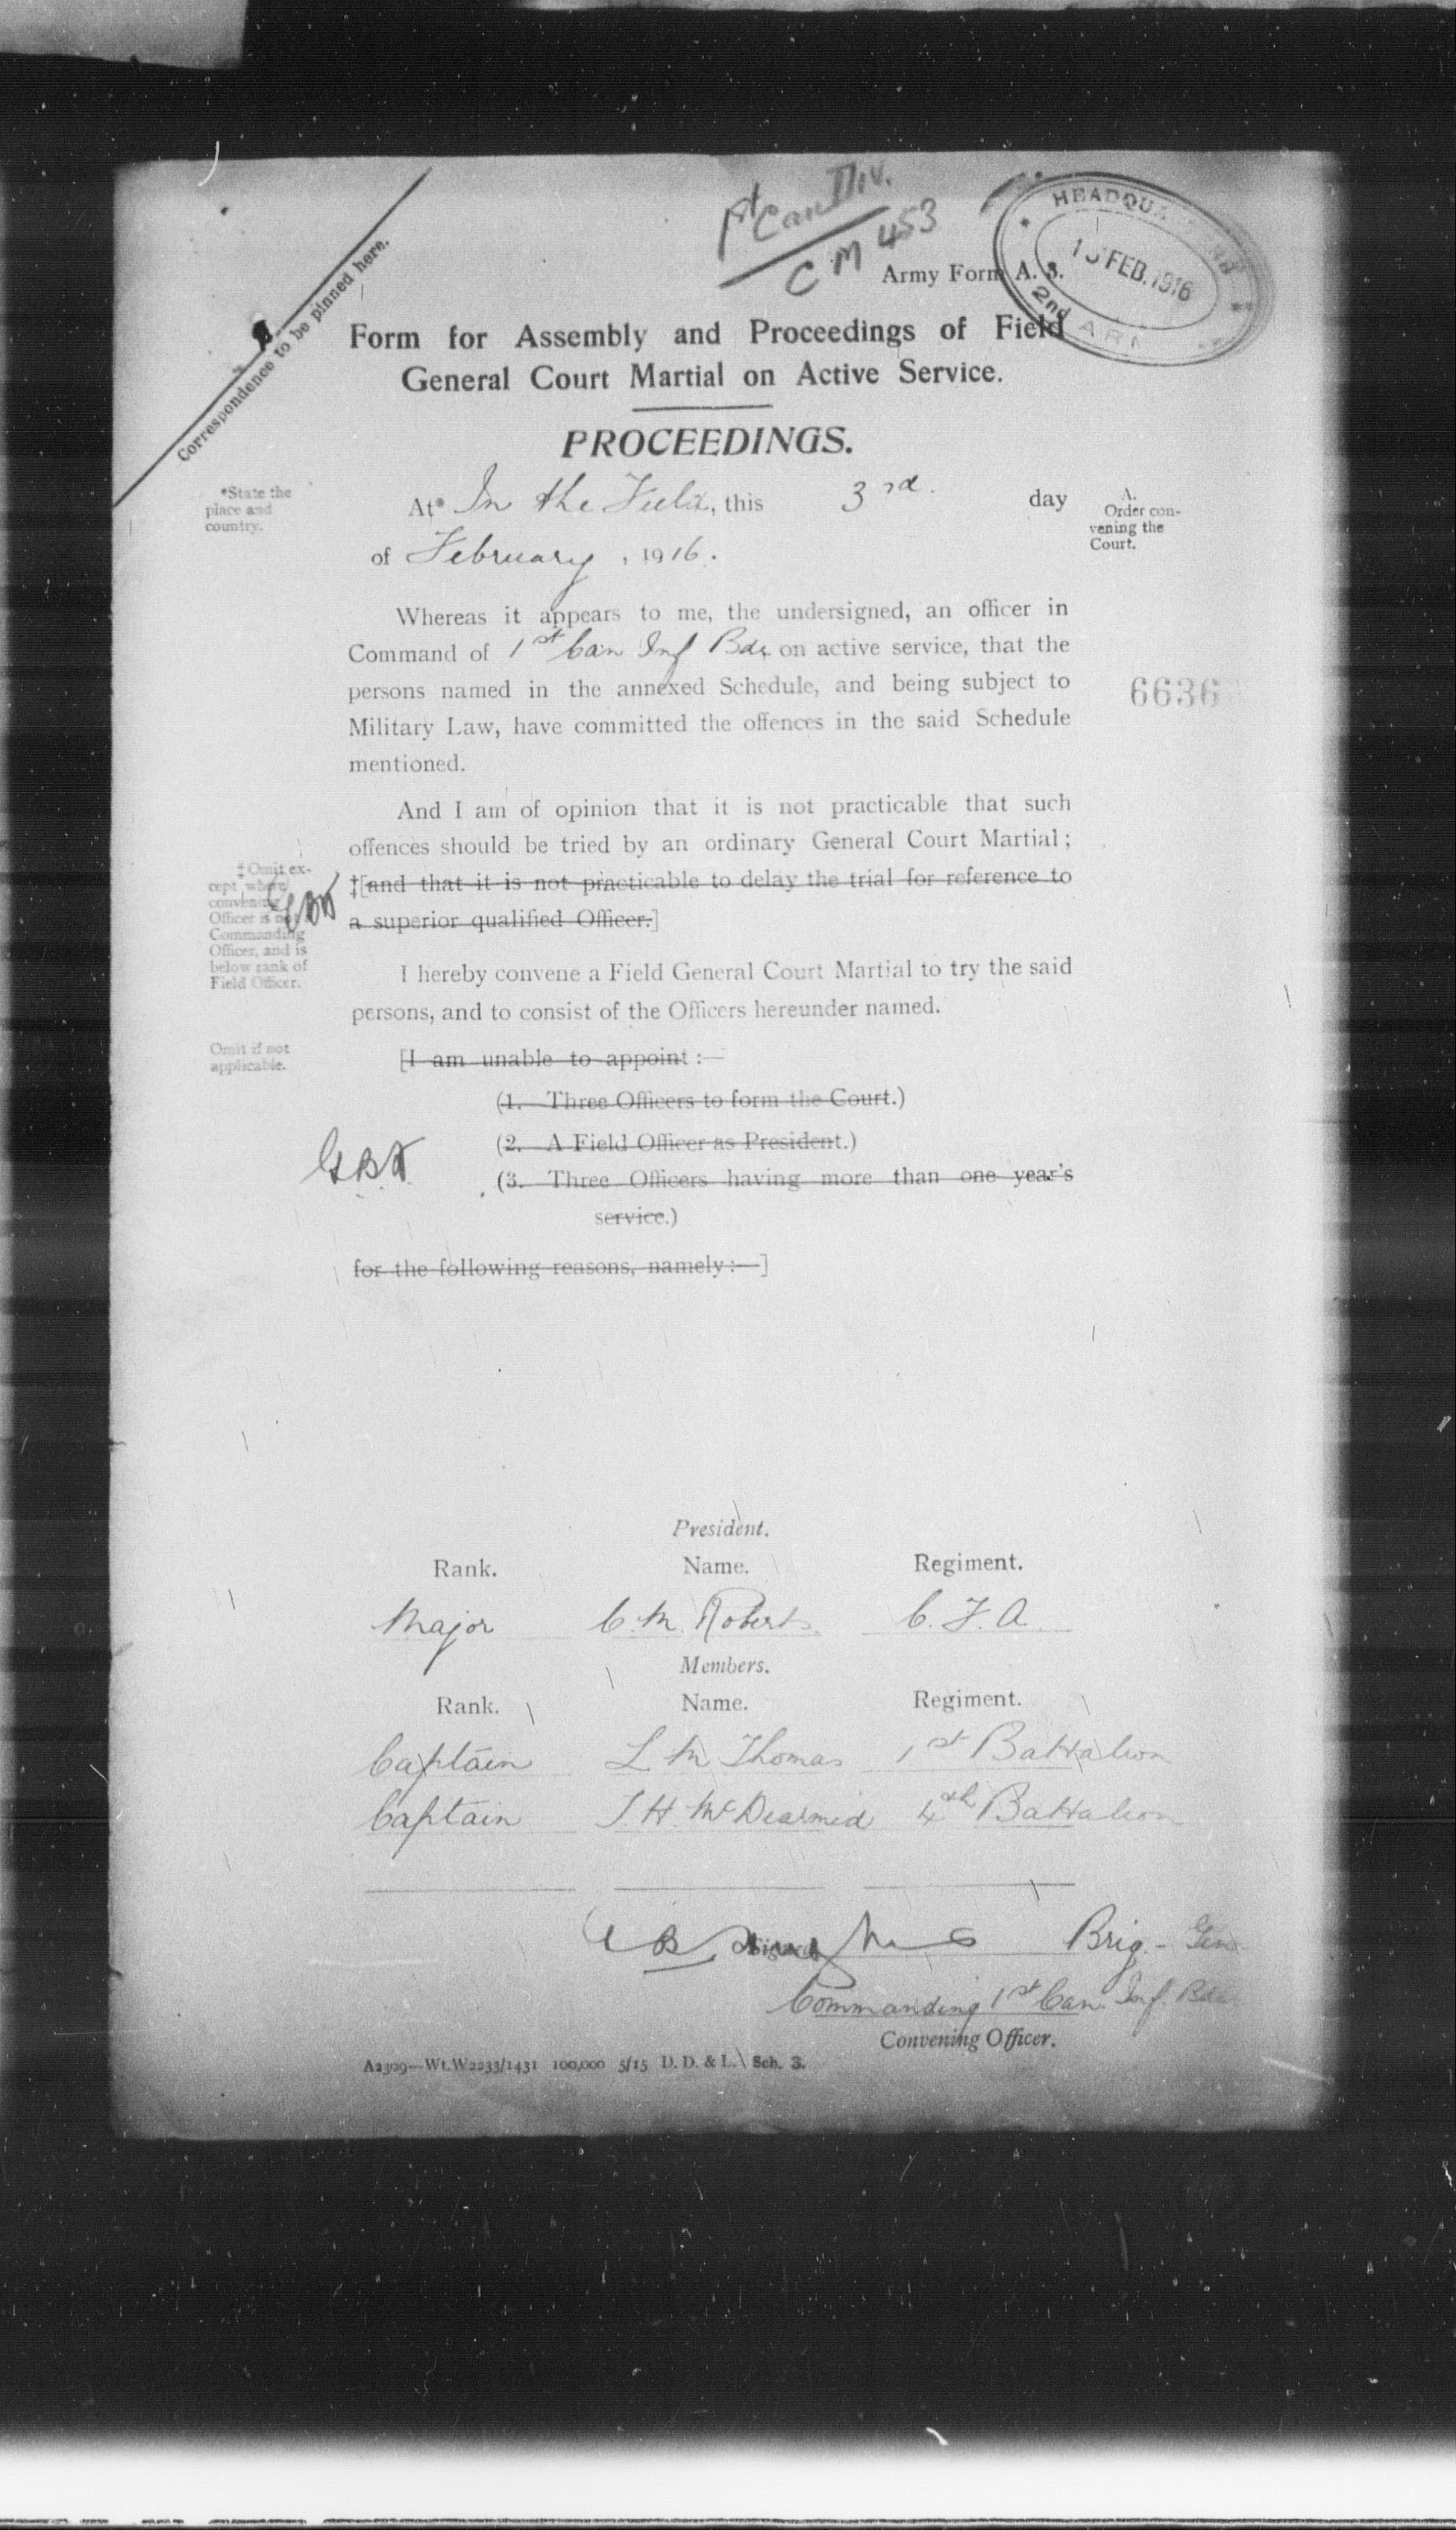 1st Can Div.
C M 453
HEADQU
FEB. 1916
2nd AR
Army Form A. 3.
Correspondence to be pinned here.
Form for Assembly and Proceedings of Field
General Court Martial on Active Service.
PROCEEDINGS.
*State the
place and
country.
At* In the Field, this 3rd. day
of February, 1916.
A.
Order con-
vening the
Court.
Whereas it appears to me, the undersigned, an officer in
Command of 1st Can Inf Bde on active service, that the
persons named in the annexed Schedule, and being subject to
Military Law, have committed the offences in the said Schedule
mentioned.
6636
And I am of opinion that it is not practicable that such
offences should be tried by an ordinary General Court Martial;
‡[and that it is not practicable to delay the trial for reference to
a superior qualified Officer.]
‡Omit ex-
cept where
convening
Officer is not
Commanding
Officer, and is
below rank of
Field Officer.
I hereby convene a Field General Court Martial to try the said
persons, and to consist of the Officers hereunder named.
Omit if not
applicable.
[I am unable to appoint :—
(1. Three Officers to form the Court.)
(2. A Field Officer as President.)
(3. Three Officers having more than one year's
service.)
for the following reasons, namely:—]
President.
Rank. Name. Regiment.
Major C. M. Roberts. C. F. A.
Members.
Rank. Name. Regiment.
Captain L M Thomas 1st Battalion
Captain J. H. McDearmid 4th Battalion
Brig.- Gen
Commanding 1st Can. Inf. Bde
Convening Officer.
A2309—Wt.W2233/1431 100,000 5/15 D. D. & L. Sch. 3.